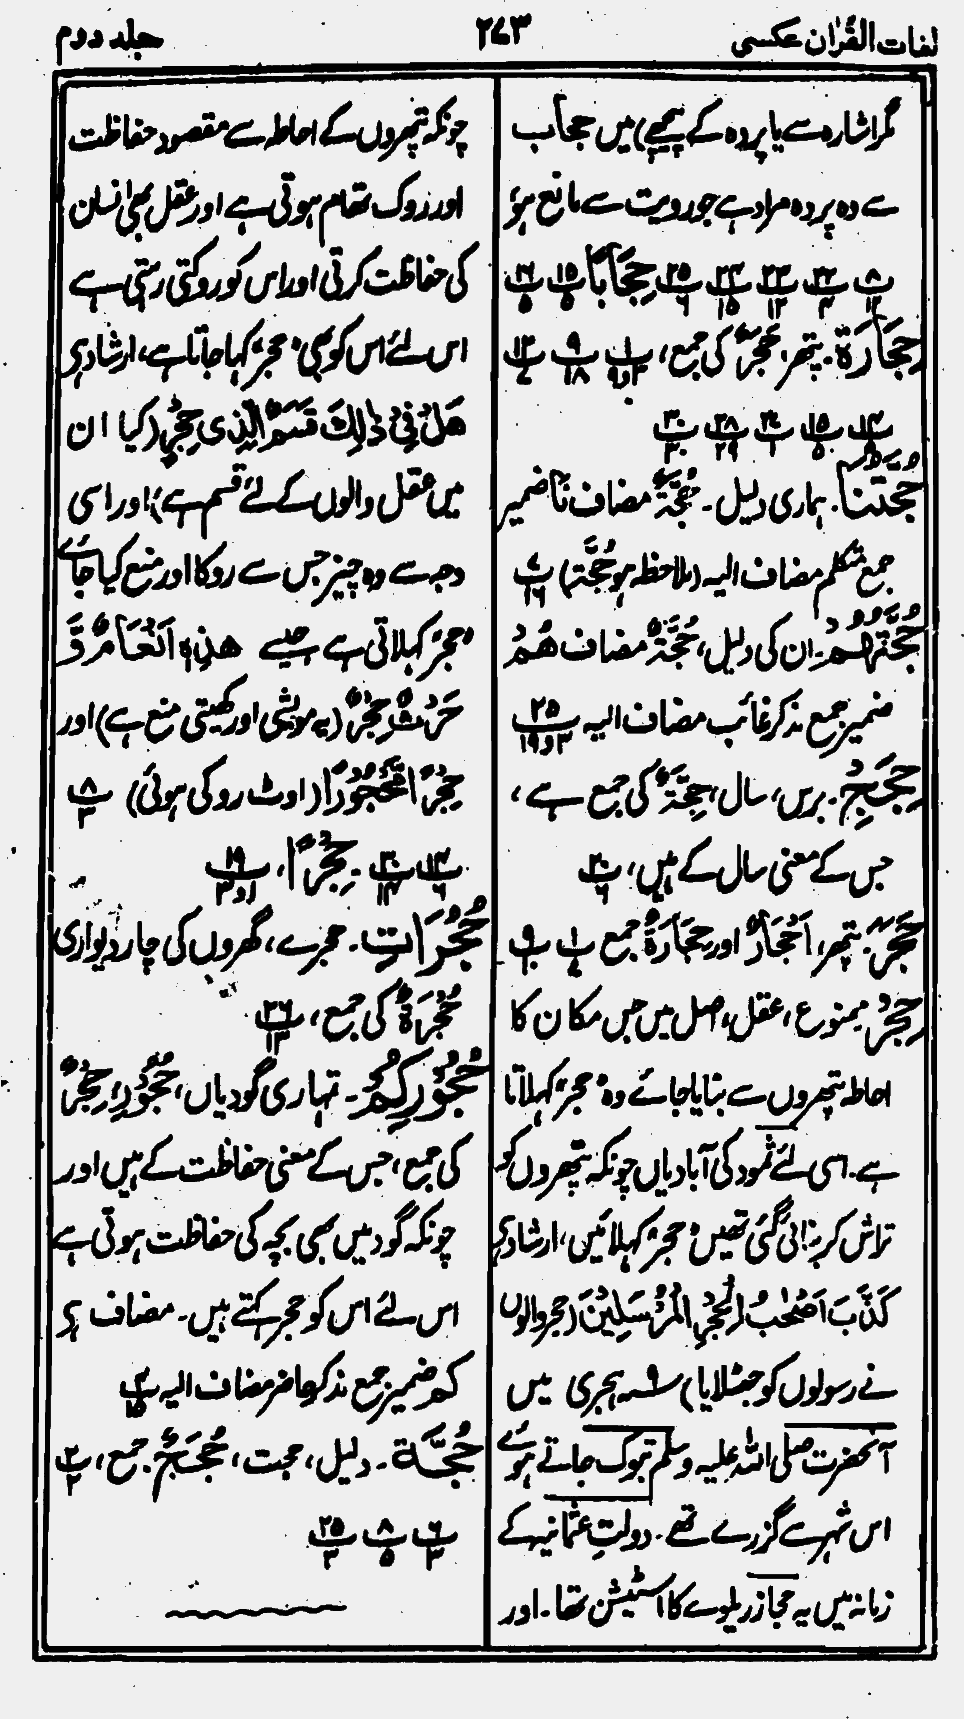 لغات القرآن عکسی
۲۷۳
جلد دوم
مگر اشارہ سے یا پردہ کے پیچھے) میں حجاب
سے وہ پردہ مراد ہے جو رویت سے مانع ہو،
پ۸/۱۲ پ۲۲/۴ پ۲۳/۱۲ پ۲۴/۱۵ پ۲۵/۶ حِجَابًا پ۱۵/۵ پ۱۶/۵
حِجَارَۃٌ۔ پتھر، حَجَرٌ کی جمع، پ۱/۳و۹ پ۹/۱۸ پ۱۲/۷
پ۱۴ پ۱۵/۵ پ۲۷/۱ پ۲۸/۲۹ پ۳۰/۳۰
حُجَّتُنَا۔ ہماری دلیل۔ حُجَّۃٌ مضاف نَا ضمیر
جمع متکلم مضاف الیہ (ملاحظہ ہو حُجَّۃ) پ۷/۱۶
حُجَّتُہُمْ۔ ان کی دلیل، حُجَّۃٌ مضاف ھُمْ
ضمیر جمع مذکر غائب مضاف الیہ پ۲۵/۳و۱۹
حِجَجٍ۔ برس، سال، حِجَّۃٌ کی جمع ہے،
جس کے معنی سال کے ہیں، پ۲۰/۶
حَجَرٌ۔ پتھر، اَحْجَارٌ اور حِجَارَۃٌ جمع پ۱/۷ پ۹/۱۰
حِجْرٌ۔ ممنوع، عقل، اصل میں جس مکان کا
احاطہ پتھروں سے بنایا جائے وہ ”حجر“ کہلاتا
ہے۔ اسی لئے ثمود کی آبادیاں چونکہ پتھروں کو
تراش کر بنائی گئی تھیں ”حجر“ کہلائیں، ارشاد ہے
کَذَّبَ اَصْحٰبُ الْحِجْرِ الْمُرْسَلِیْنَ (حجر والوں
نے رسولوں کو جھٹلایا) ۹؁ ہجری میں
آنحضرت صلی اللہ علیہ وسلم تبوک جاتے ہوئے
اس شہر سے گزرے تھے۔ دولتِ عثمانیہ کے
زمانہ میں یہ حجاز ریلوے کا اسٹیشن تھا۔ اور
چونکہ پتھروں کے احاطہ سے مقصود حفاظت
اور روک تھام ہوتی ہے اور عقل بھی انسان
کی حفاظت کرتی اور اس کو روکتی رہتی ہے
اس لئے اس کو بھی ”حجر“ کہا جاتا ہے، ارشاد ہے
ھَلْ فِیْ ذٰلِکَ قَسَمٌ لِّذِی حِجْرٍ (کیا ان
میں عقل والوں کے لئے قسم ہے)؛ اور اسی
وجہ سے وہ چیز جس سے روکا اور منع کیا جائے
”حجر“ کہلاتی ہے جیسے ھٰذِہٖ اَنْعَامٌ وَّ
حَرْثٌ حِجْرٌ (یہ مویشی اور کھیتی منع ہے) اور
حِجْرًا مَّحْجُوْرًا (اوٹ روکی ہوئی) پ۸/۳
پ۱۴/۶ پ۳۰/۱۴۔ حِجْرًا، پ۱۹/۱و۳
حُجُرَاتِ۔ حجرے، گھروں کی چار دیواری
حُجْرَۃٌ کی جمع، پ۲۶/۱۳
حُجُوْرِکُمْ۔ تمہاری گودیاں، حُجُوْرٌ، حِجْرٌ
کی جمع، جس کے معنی حفاظت کے ہیں اور
چونکہ گود میں بھی بچہ کی حفاظت ہوتی ہے
اس لئے اس کو حجر کہتے ہیں۔ مضاف ہے
کم ضمیر جمع مذکر حاضر مضاف الیہ پ۴/۱۵
حُجَّۃٌ۔ دلیل، حجت، حُجَجٌ جمع، پ۲/۲
پ۶/۳ پ۸/۵ پ۲۵/۳